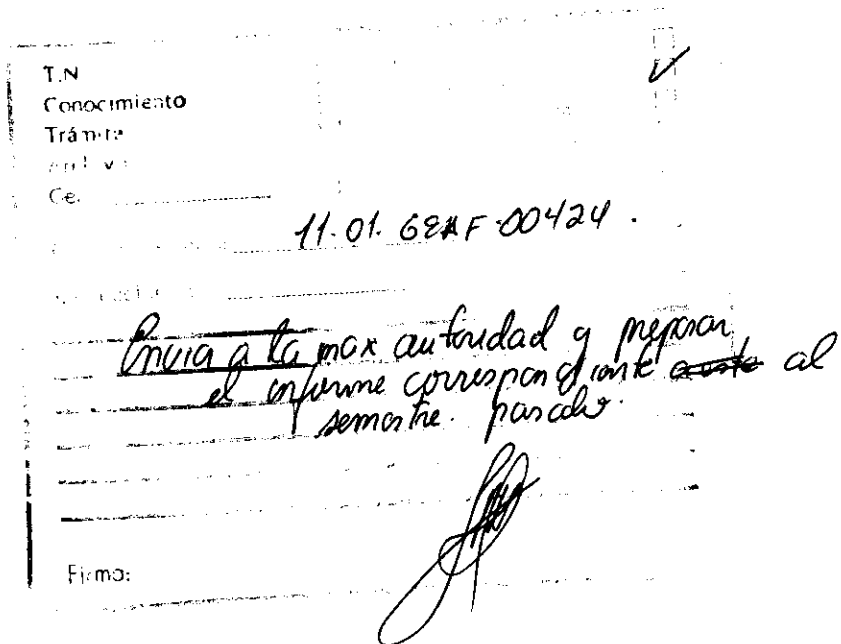 T.N
Conocimiento
Trámite
Ce.
11.01.GEAF-00424.
Envia a la max autoridad y preparar
el informe correspondiente al
semestre. pasado.
Firma: